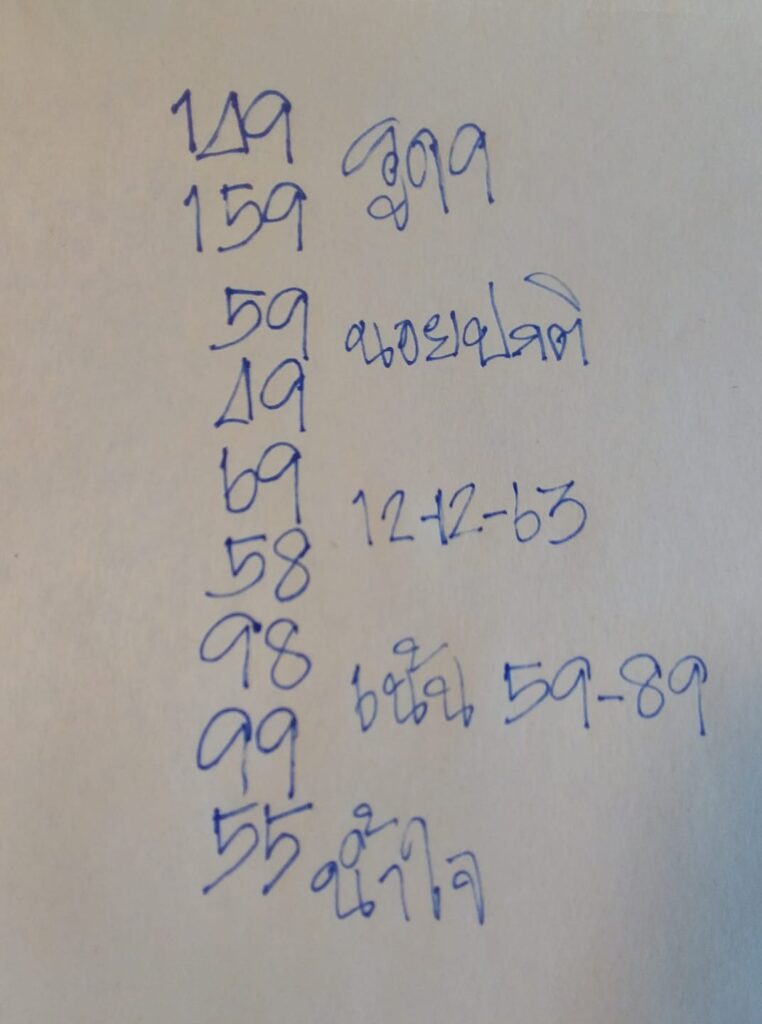 149
159
59 นอยปกติ
49
69
12-12-63
58
98
เน้น 59-89
99
55 น้ำใจ